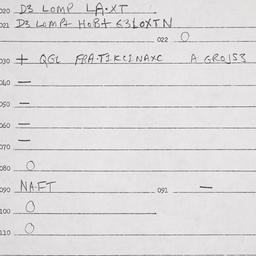 020 D3 LOMP LA·XT
021 D3 LOMP+ HOBT 63LOXTN
022 O
030 + QGL FRA·TIKCINAXC A GROJS3
040 —
050 —
060 —
070 —
080 O
090 NA·FT 091 —
100 O
110 O